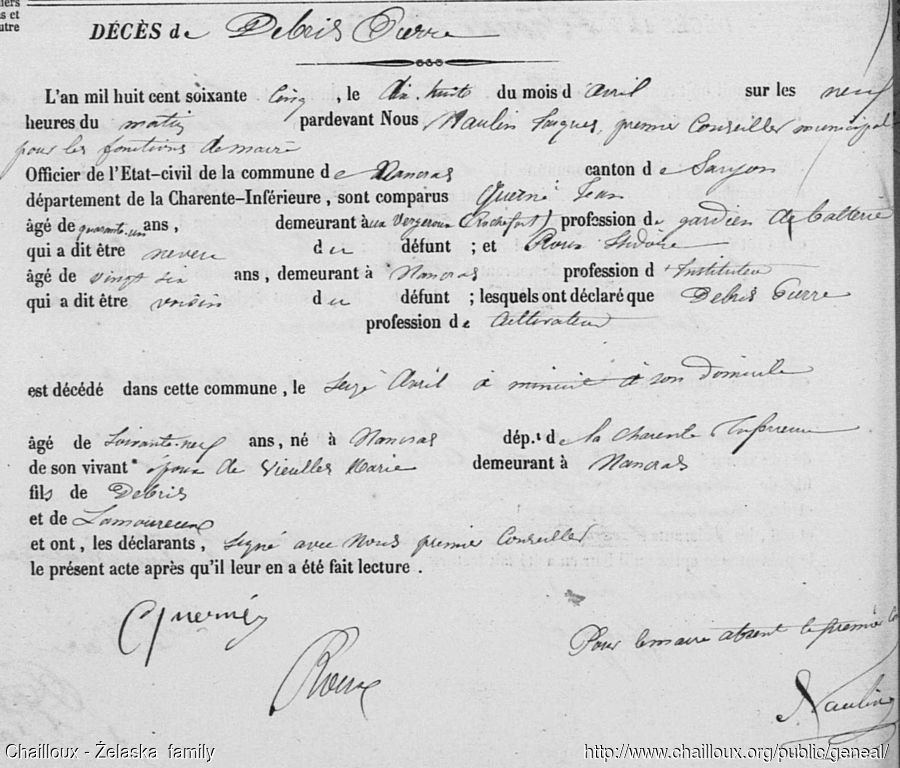 iers
s et
utre
DÉCÈS de Debris Pierre
L'an mil huit cent soixante cinq, le dix huit du mois d'avril sur les neuf
heures du matin pardevant Nous Naulin Jacques, premier Conseiller municipal
pour les fonctions de maire
Officier de l'Etat-civil de la commune de Nancras canton de Saujon
département de la Charente-Inférieure, sont comparus Querné Jean
âgé de quarante-un ans, demeurant à aux Vergeroux (Rochefort) profession de gardien de batterie
qui a dit être neveu du défunt ; et Roux
âgé de vingt six ans, demeurant à Nancras profession d'Instituteur
qui a dit être voisin du défunt ; lesquels ont déclaré que Debris Pierre
profession de cultivateur
est décédé dans cette commune, le seize Avril à minuit à son domicile
âgé de Soixante-neuf ans, né à Nancras dép.t de la Charente Inférieure
de son vivant époux de Vieulles Marie demeurant à Nancras
fils de Debris
et de Lamoureux
et ont, les déclarants, signé avec Nous premier Conseiller
le présent acte après qu'il leur en a été fait lecture.
Querné
Roux
Pour le maire absent le premier Co
Naulin
Chailloux - Želaska family
http://www.chailloux.org/public/geneal/